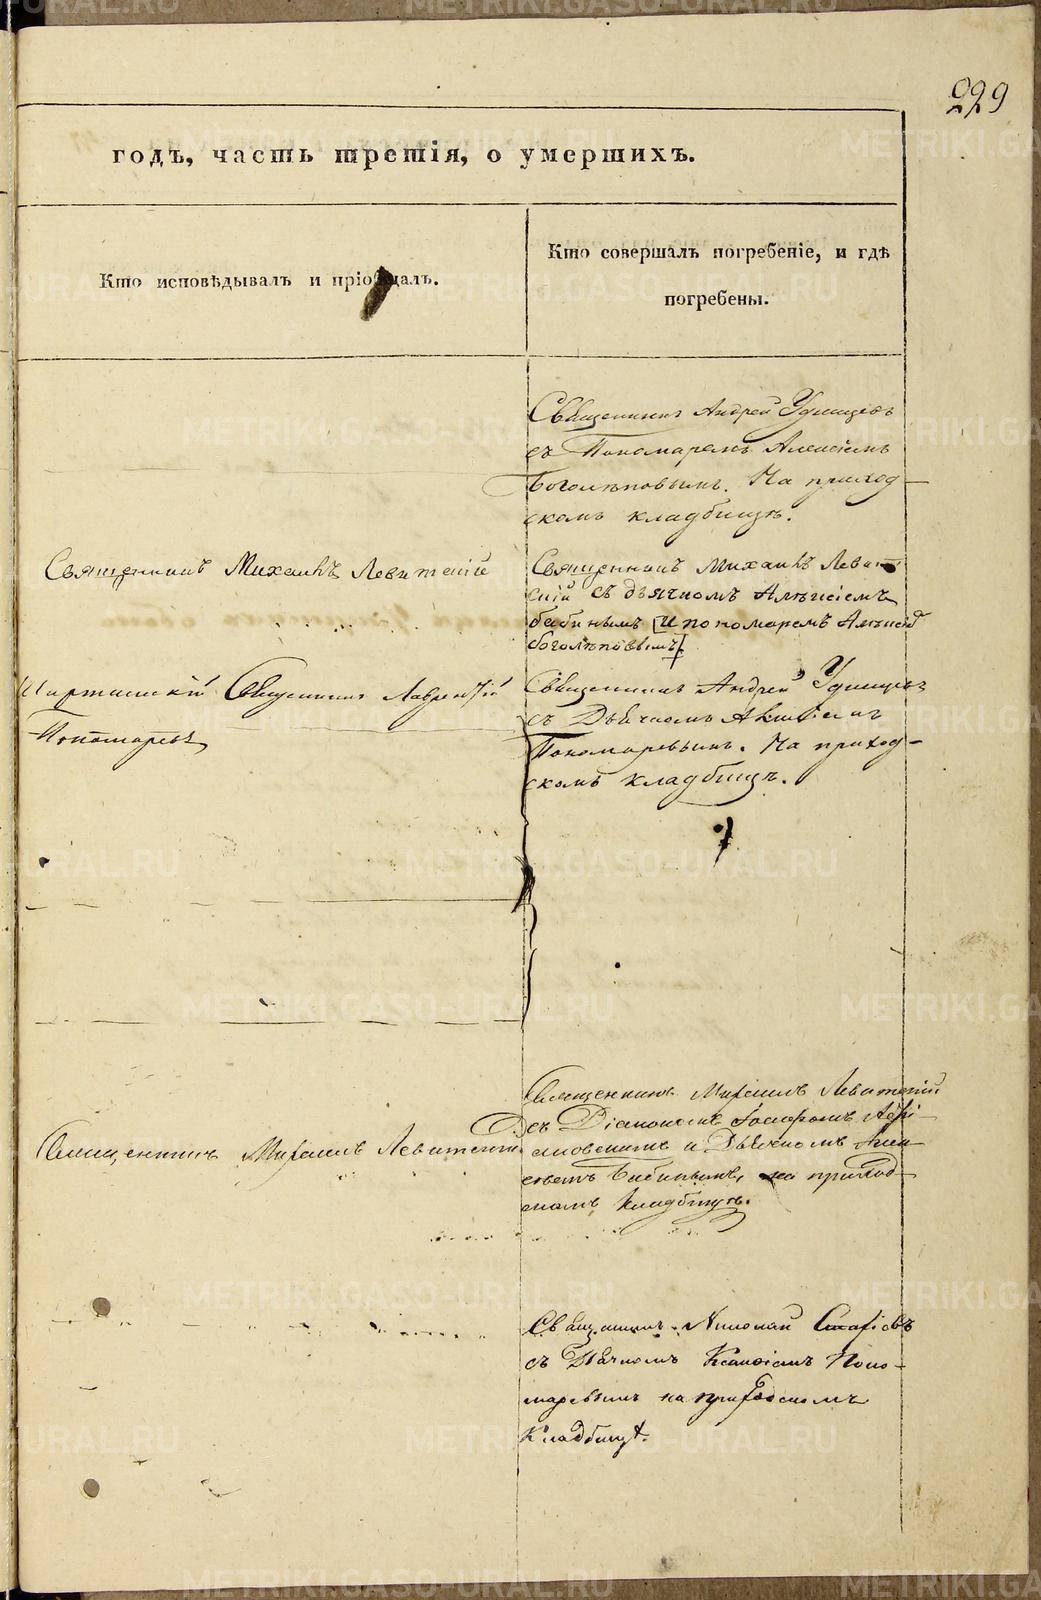 229
годъ, часть третія, о умершихъ.
Кто исповѣдывалъ и пріобщалъ.
Кто совершалъ погребеніе, и гдѣ
погребены.
Священникъ Андрей Удинцевъ
съ Пономаремъ Алексіемъ
Боголѣповымъ. На приход-
скомъ кладбищѣ.
Священникъ Михаилъ Левитскій
Священникъ Михаилъ Левит
скій съ дьячкомъ Алѣксіемъ
бабинымъ и пономаремъ Алѣксі
боголѣповымъ
Священникъ Лаврентій
Пономаревъ
Священникъ Андрей Удинцевъ
съ Дьячкомъ
Пономаревымъ. На приход-
скомъ кладбищѣ.
Священникъ Михаилъ Левитскій
Священникъ Михаилъ Левитскій
съ Діакономъ
и Дьячкомъ Алек
сѣемъ Бабинымъ, на приход
скомъ кладбищѣ.
Священникъ Николай
съ Дьячкомъ Поно-
маревымъ на приходскомъ
Кладбищѣ.
METRIKI.GASO-URAL.RU